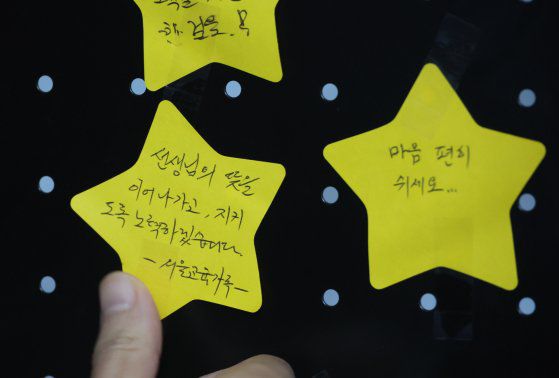 한 걸음, 
선생님의 뜻을
이어 나가고, 지키
도록 노력하겠습니다.
- 서울교육가족 -
마음 편히
쉬세요...